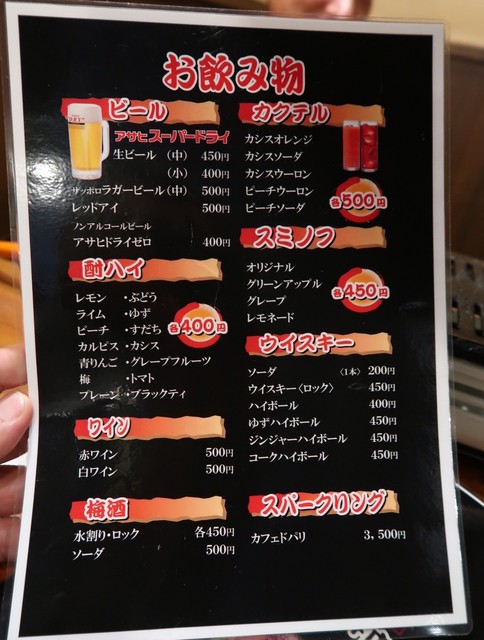 お飲み物
ビール
アサヒスーパードライ
生ビール （中） 450円
（小） 400円
サッポロラガービール（中） 500円
レッドアイ 500円
ノンアルコールビール
アサヒドライゼロ 400円
酎ハイ
レモン ・ぶどう
ライム ・ゆず
ピーチ ・すだち
カルピス・カシス
青りんご・グレープフルーツ
梅 ・トマト
プレーン・ブラックティ
各400円
ワイン
赤ワイン 500円
白ワイン 500円
梅酒
水割り・ロック 各450円
ソーダ 500円
カクテル
カシスオレンジ
カシスソーダ
カシスウーロン
ピーチウーロン
ピーチソーダ
各500円
スミノフ
オリジナル
グリーンアップル
グレープ
レモネード
各450円
ウイスキー
ソーダ 〈1本〉 200円
ウイスキー〈ロック〉 450円
ハイボール 400円
ゆずハイボール 450円
ジンジャーハイボール 450円
コークハイボール 450円
スパークリング
カフェドパリ 3,500円